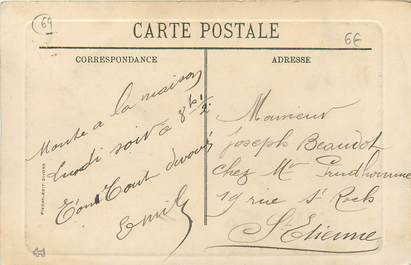 69
6€
CARTE POSTALE
CORRESPONDANCE
ADRESSE
Monte a la maison
lundi soir a 8h 1/2
Ton tout dévoué
Emile
Monsieur
Joseph Beaudot
chez Mr Prudhomme
19 rue St Roch
St Etienne